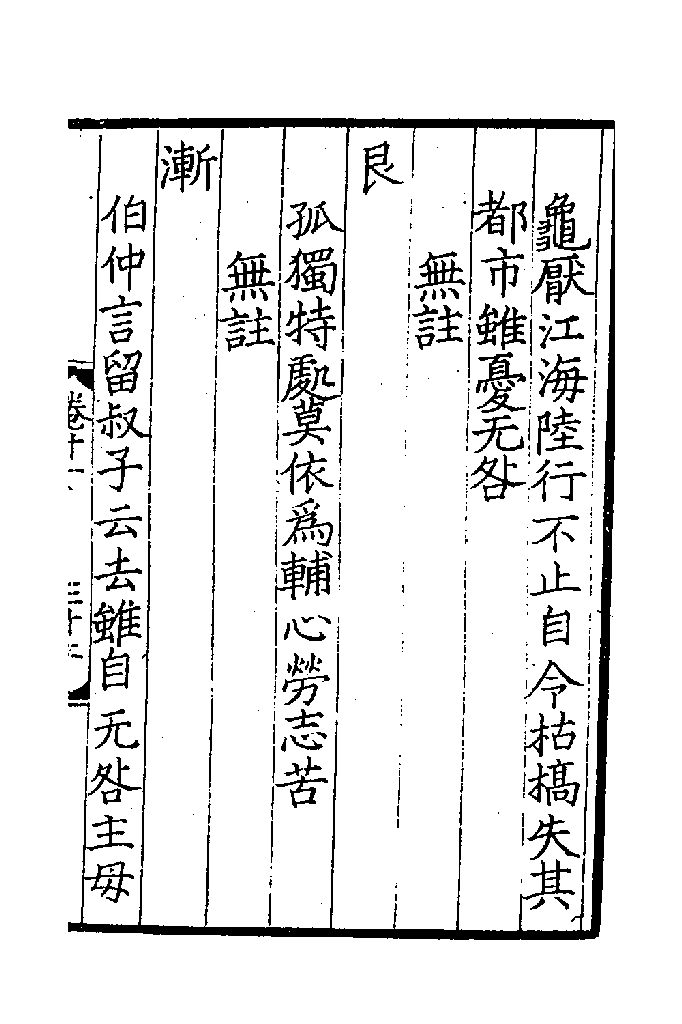 龜厭江海陸行不止自令枯槁失其
都市雖憂无咎
無註
艮
孤獨特處莫依為輔心勞志苦
無註
漸
伯仲言留叔子云去雖自无咎主毋